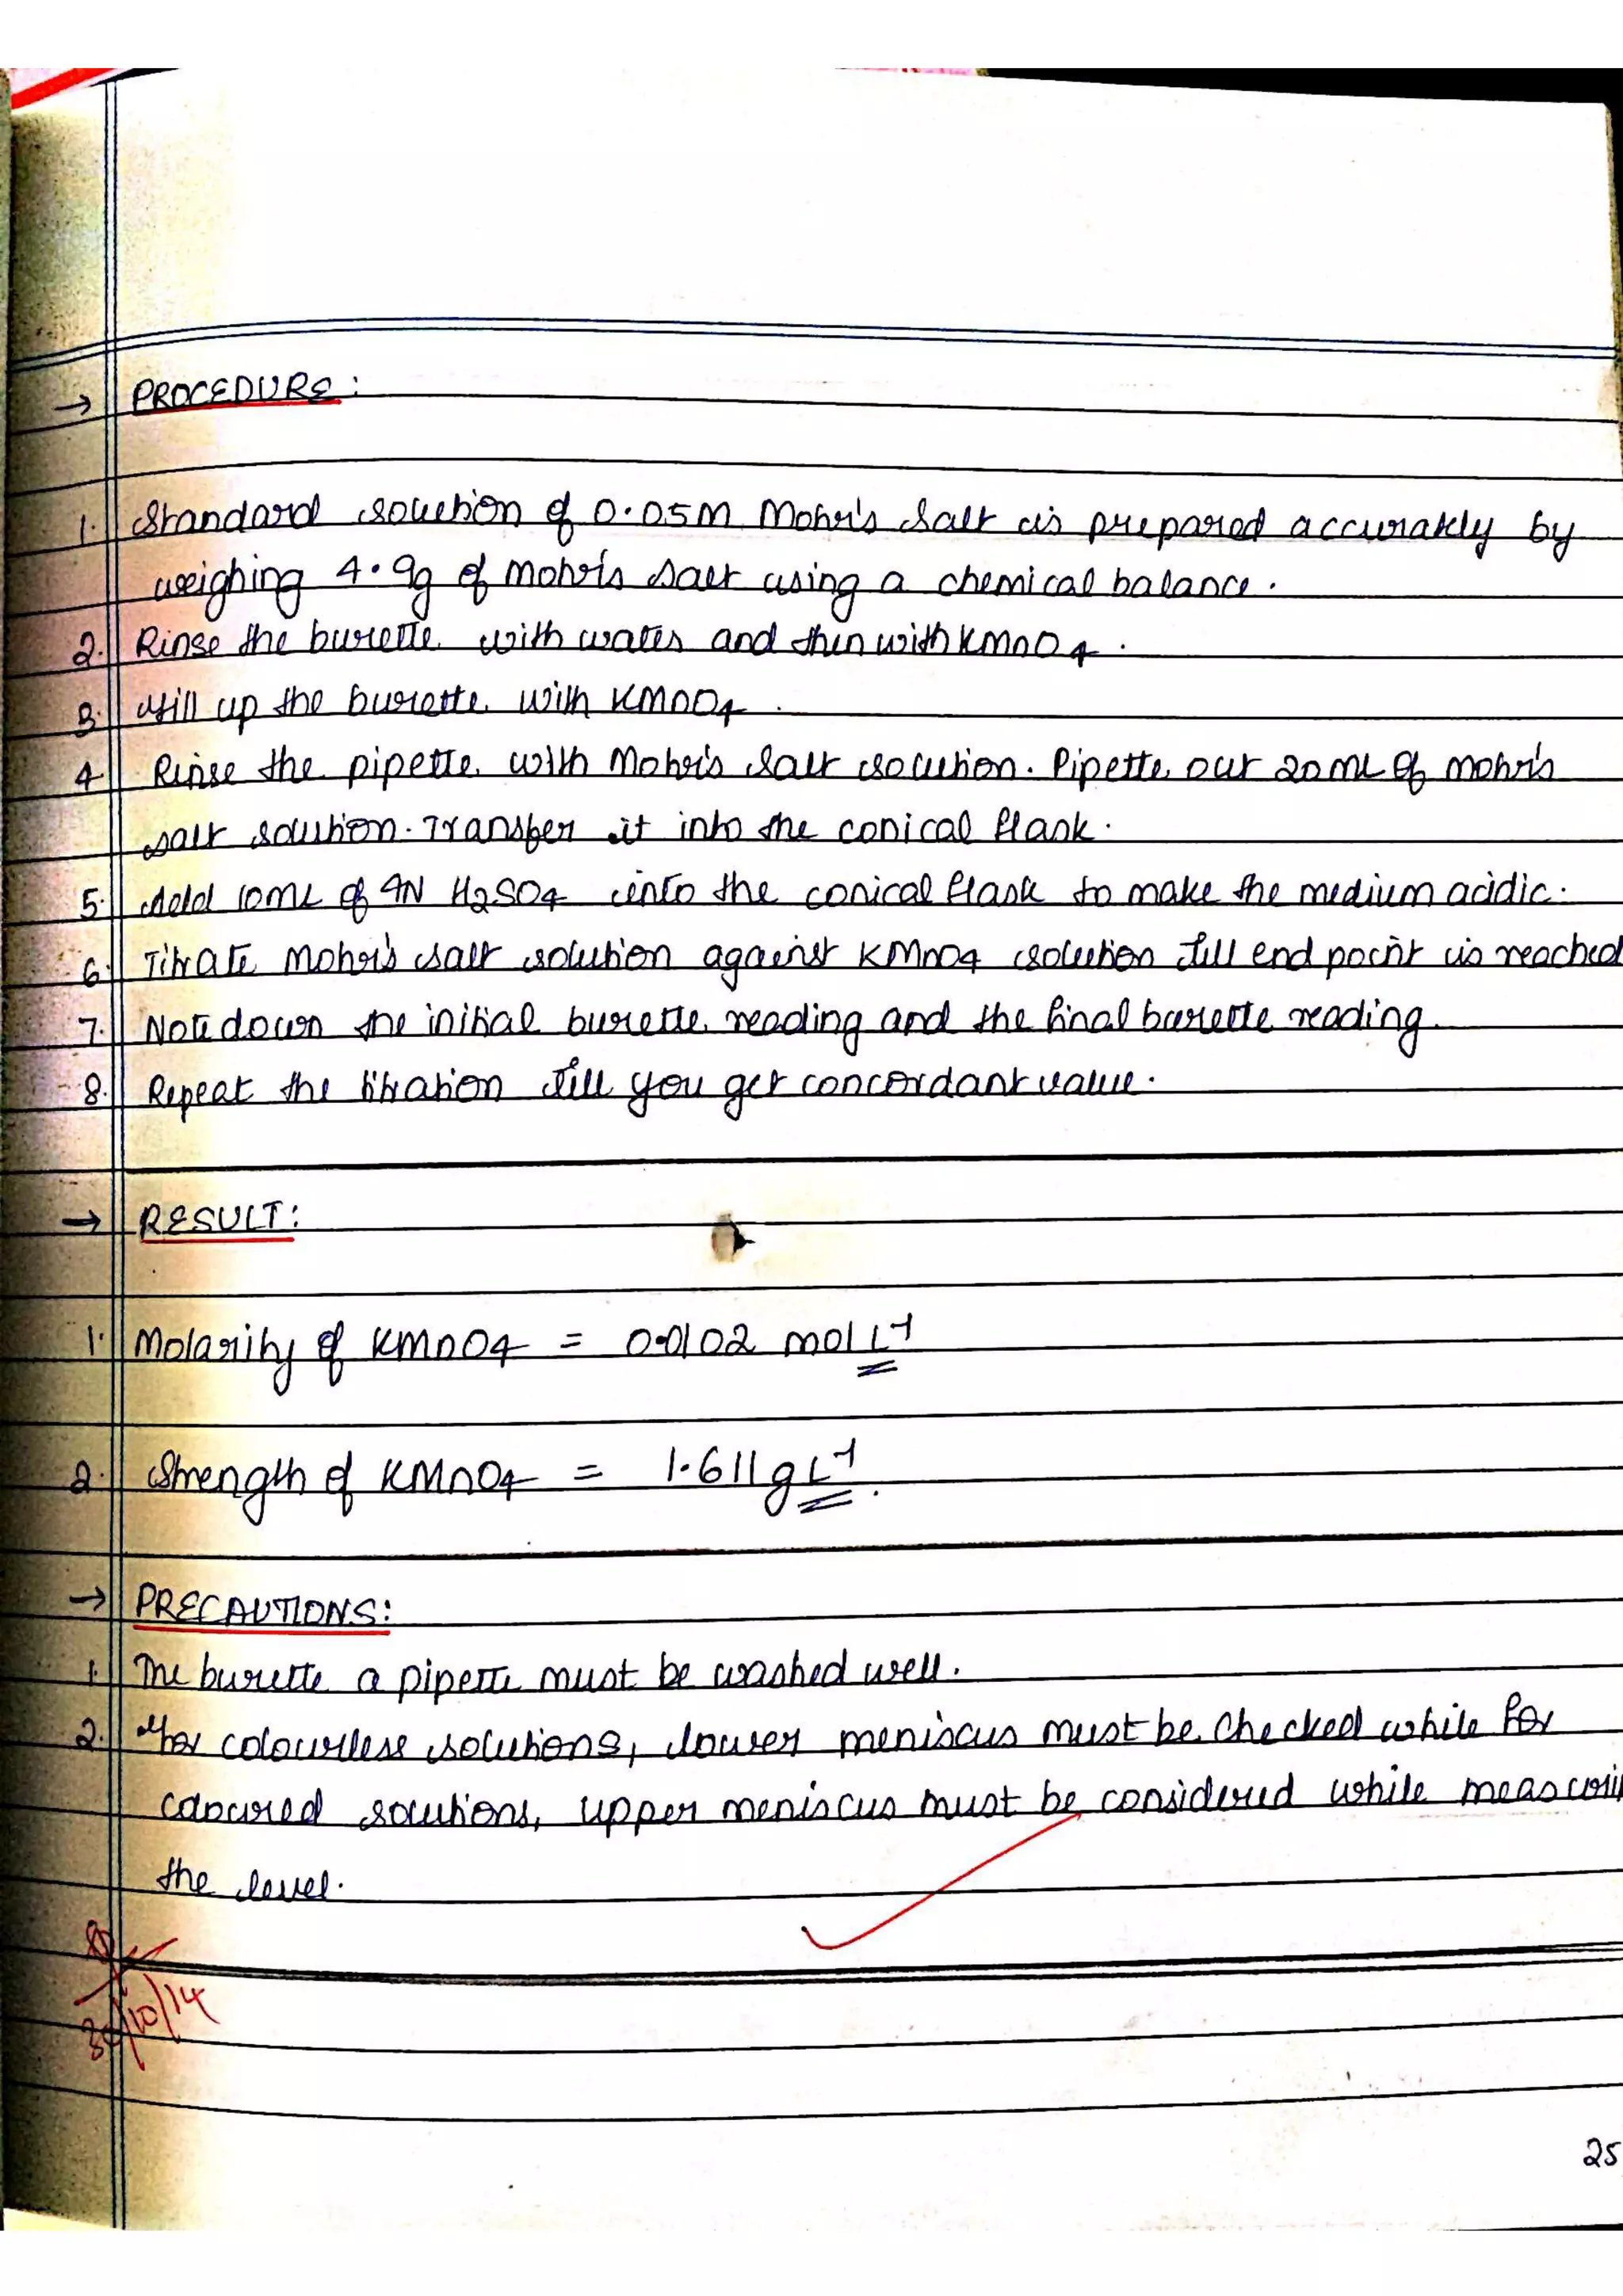 → PROCEDURE:
1. Standard solution of 0.05M Mohr's Salt is prepared accurately by
weighing 4.9g of Mohr's salt using a chemical balance.
2. Rinse the burette with water and then with KMnO4.
3. Fill up the burette with KMnO4.
4 Rinse the pipette with Mohr's salt solution. Pipette out 20mL of Mohr's
salt solution. Transfer it into the conical flask.
5. Add 10mL of 4N H2SO4 into the conical flask to make the medium acidic.
6. Titrate Mohr's salt solution against KMnO4 solution till end point is reached
7. Note down the initial burette reading and the final burette reading.
8. Repeat the titration till you get concordant value.
→ RESULT:
1. Molarity of KMnO4 = 0.0102 mol L⁻¹
2. Strength of KMnO4 = 1.611 g L⁻¹.
→ PRECAUTIONS:
1. The burette a pipette must be washed well.
2. For colourless solutions, lower meniscus must be checked while for
coloured solutions, upper meniscus must be considered while measurin
the level.
/10/14
25